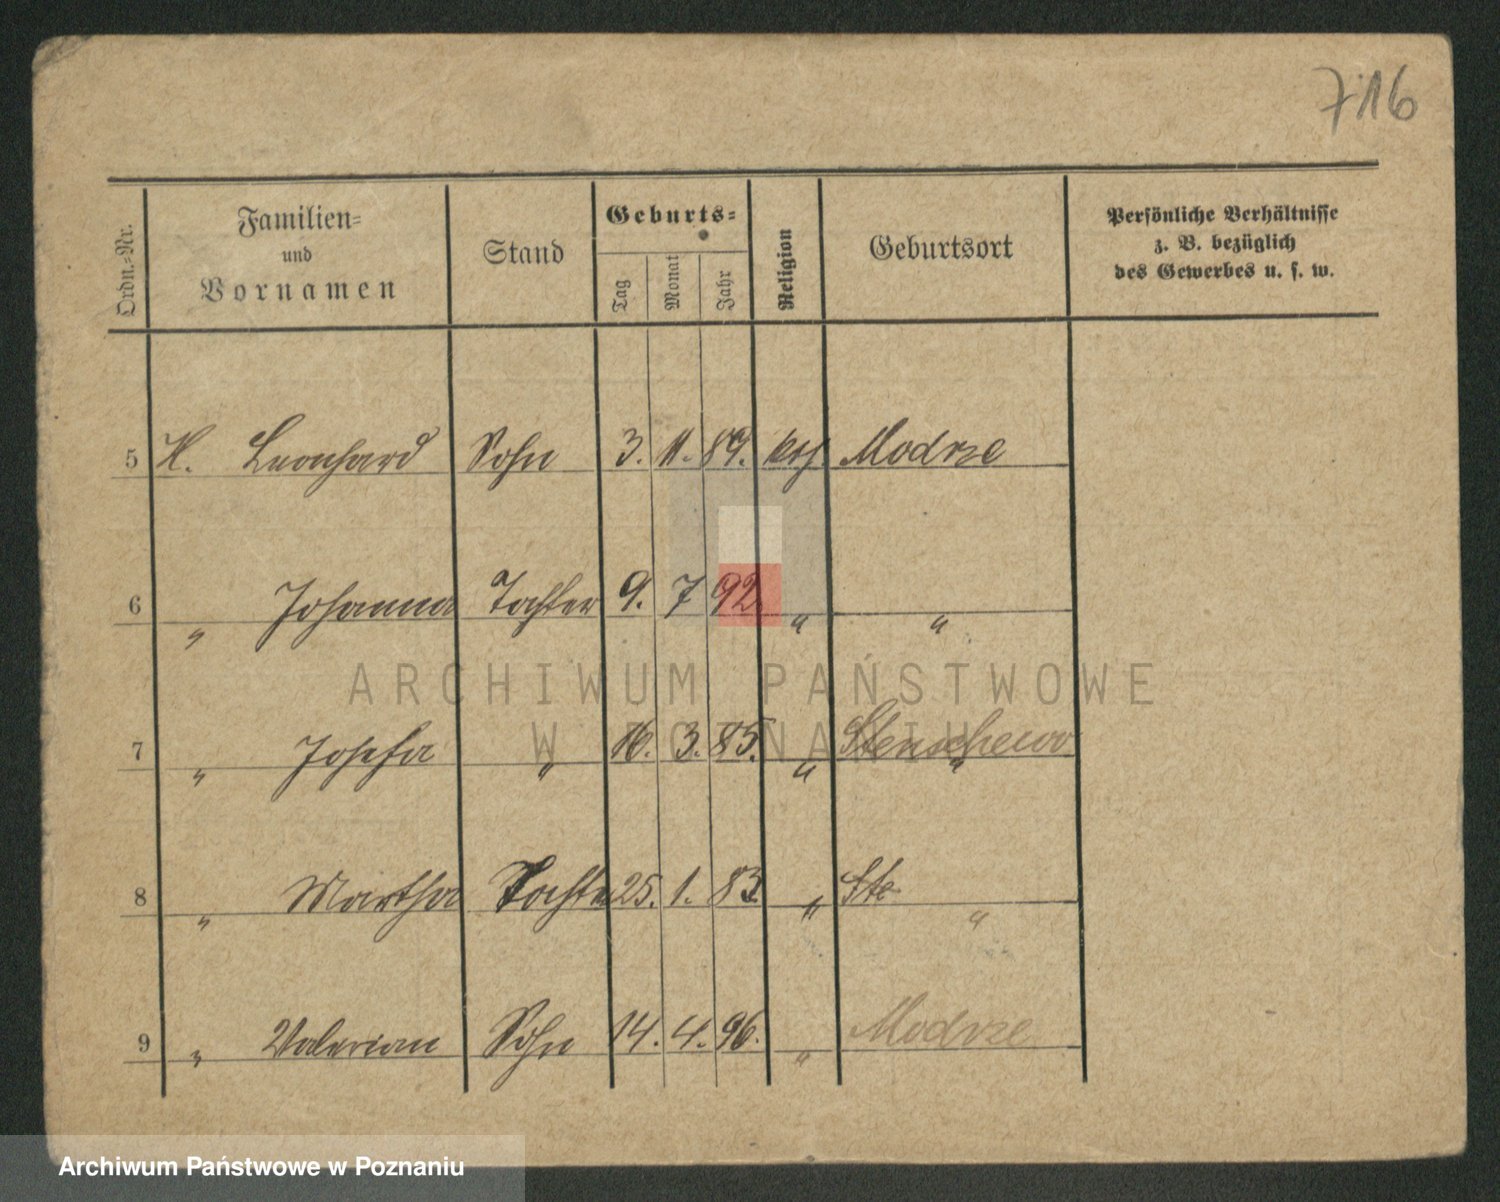 716
Ordn.-Nr.
Familien-
und
Vornamen
Stand
Geburts-
Tag
Monat
Jahr
Religion
Geburtsort
Persönliche Verhältnisse
z. B. bezüglich
des Gewerbes u. s. w.
5 K. Leonhard Sohn 3. 11. 89. kth Modrze
6 " Johanna Tochter 9. 7 92. " "
7 " Josefa " 16. 3. 85. " Stenschewo "
8 " Martha Tochter 25. 1. 83. " Ste "
9 " Valerian Sohn 14. 4. 96. " Modrze
ARCHIWUM PAŃSTWOWE
W POZNANIU
Archiwum Państwowe w Poznaniu